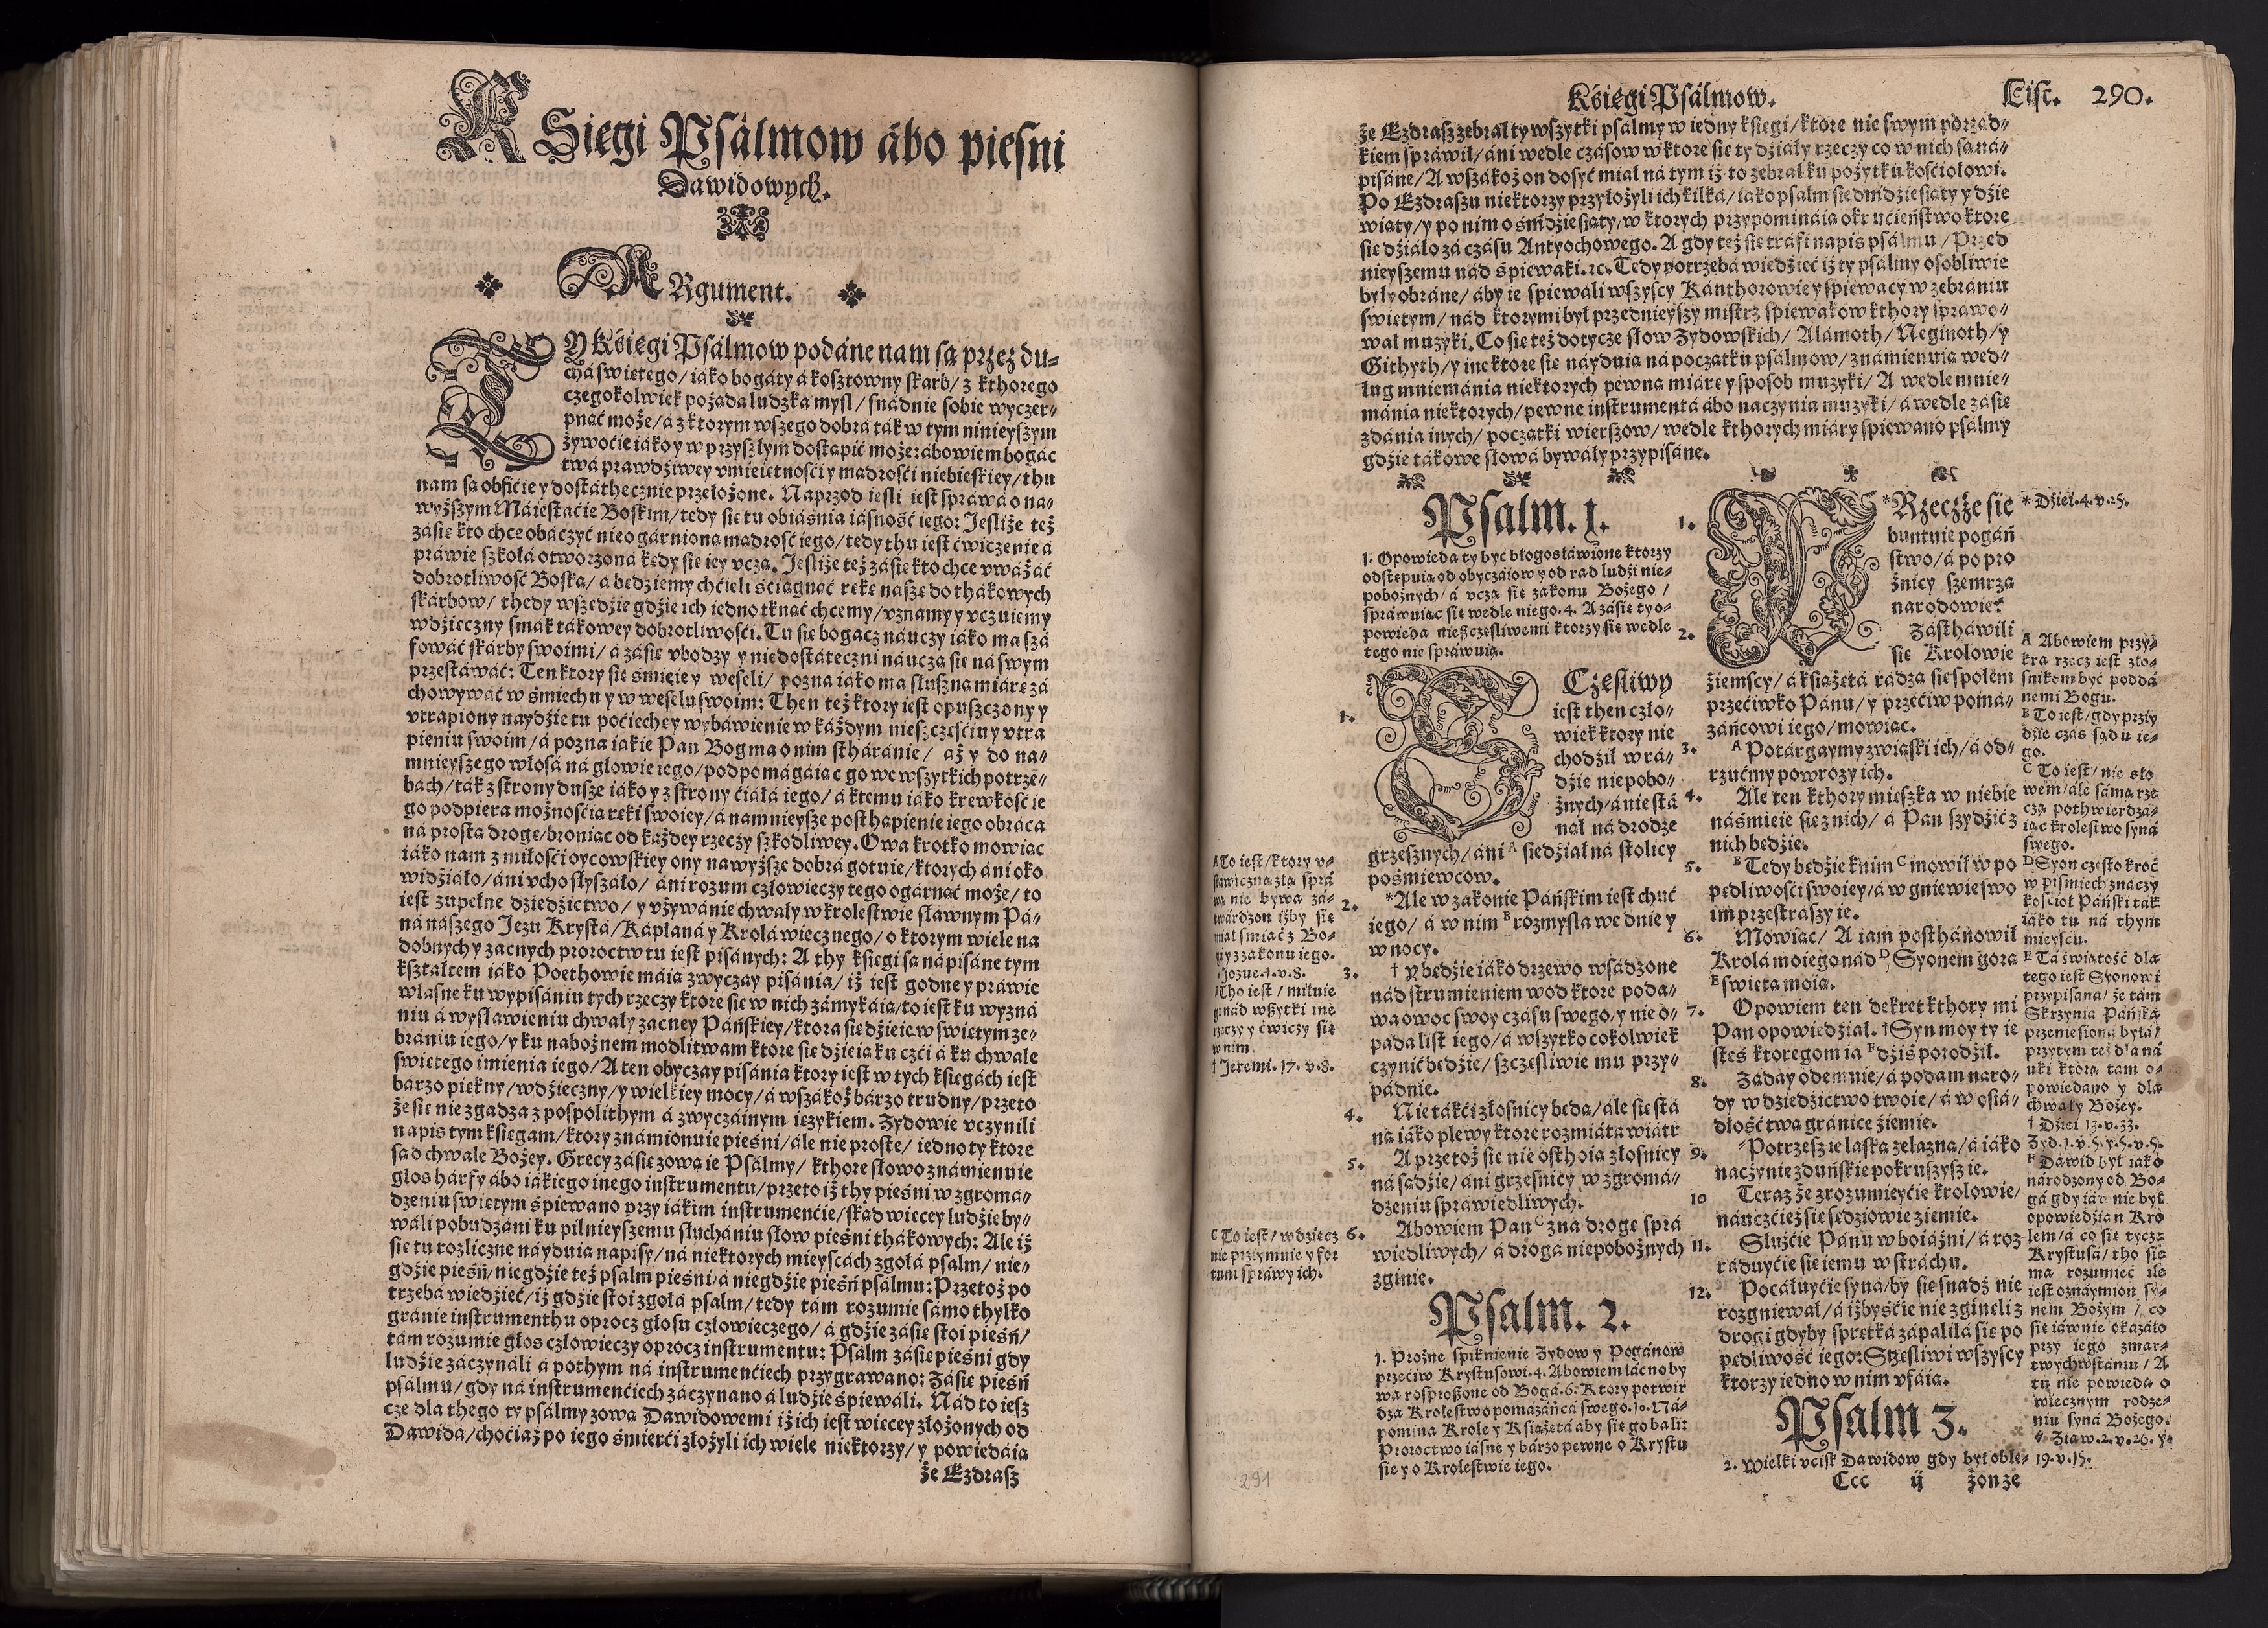 KSięgi Psalmow ábo pieśni
Dawidowych.
ARgument.
TY Księgi Psálmow podáne nam są przez du-
chá świętego/ iáko bogáty á kosztowny skarb/ z kthorego
czegokolwiek pożąda ludzka mysl/ snádnie sobie wyczer-
pnąć może/ á z ktorym wszego dobrá ták w tym ninieyszym
żywocie iáko y w przyszłym dostąpić może: ábowiem bogác
twá prawdźiwey vmieiętnośći y mądrośći niebieskiey/ thu
nam są obfićie y dostáthecznie przełożone. Naprzod iesli iest spráwá o na-
wyższym Máiestaćie Boskim/ tedy się tu obiáśnia iásność iego: Jesliże też
zásię kto chce obáczyć nieogárnioną mądrość iego/ tedy thu iest ćwiczenie á
práwie szkołá otworzona kędy się iey vczą. Jesliże też zásię kto chce vważáć
dobrotliwość Boską/ á będziemy chćieli śćiągnąć rękę nászę do thákowych
skárbow/ thedy wszędźie gdźie ich iedno tknąć chcemy/ vznamy y vczuiemy
wdźięczny smák tákowey dobrotliwośći. Tu się bogacz náuczy iáko ma szá
fowáć skárby swoimi/ á zásię vbodzy y niedostáteczni náuczą się ná swym
przestáwáć: Ten ktory się śmieie y weseli/ pozna iáko ma słuszną miárę zá
chowywáć w śmiechu y w weselu swoim: Then też ktory iest opuszczony y
vtrapiony naydźie tu poćiechę y wybáwienie w káżdym nieszczęśćiu y vtra
pieniu swoim/ á pozna iákie Pan Bog ma o nim stháránie/ áż y do na-
mnieyszego włosá ná głowie iego/ podpomágáiąc go we wszytkich potrze-
bách/ ták z strony dusze iáko y z strony ćiáłá iego/ á ktemu iáko krewkość ie
go podpiera możnośćią ręki swoiey/ á namnieysze posthąpienie iego obráca
ná prostą drogę/ broniąc od káżdey rzeczy szkodliwey. Owa krotko mowiąc
iáko nam z miłośći oycowskiey ony nawyższe dobrá gotuie/ ktorych áni oko
widźiáło/ áni vcho słyszáło/ áni rozum człowieczy tego ogárnąć może/ to
iest zupełne dźiedźictwo/ y vżywánie chwały w krolestwie sławnym Pá-
ná nászego Jezu Krystá/ Kápłaná y Krolá wiecznego/ o ktorym wiele na
dobnych y zacnych proroctw tu iest pisánych: A thy księgi są nápisáne tym
kształtem iáko Poethowie máią zwyczay pisánia/ iż iest godne y práwie
własne ku wypisániu tych rzeczy ktore się w nich zámykáią/ to iest ku wyzná
niu á wysławieniu chwały zacney Páńskiey/ ktora się dźieie w świętym ze-
brániu iego/ y ku nabożnem modlitwam ktore się dźieią ku czći á ku chwale
świętego imienia iego/ A ten obyczay pisánia ktory iest w tych księgách iest
bárzo piękny/ wdźięczny/ y wielkiey mocy/ á wszákoż bárzo trudny/ przeto
że się nie zgadza z pospolithym á zwyczáinym ięzykiem. Zydowie vczynili
napis tym księgam/ ktory známionuie pieśni/ ále nie proste/ iedno ty ktore
są o chwale Bożey. Grecy zásię zową ie Psálmy/ kthore słowo známienuie
głos hárfy ábo iákiego inego instrumentu/ przeto iż thy pieśni w zgromá-
dzeniu świętym śpiewano przy iákim instrumenćie/ skąd więcey ludźie by-
wáli pobudzáni ku pilnieyszemu słuchániu słow pieśni thákowych: Ale iż
się tu rozliczne náyduią napisy/ ná niektorych mieyscách zgołá psalm/ nie-
gdźie pieśń/ niegdźie też psalm pieśni/ á niegdźie pieśń psálmu: Przetoż po
trzebá wiedźieć/ iż gdźie stoi zgołá psalm/ tedy tám rozumie sámo thylko
gránie instrumenthu oprocz głosu człowieczego/ á gdźie zásię stoi pieśń/
tám rozumie głos człowieczy oprocz instrumentu: Psalm zásię pieśni gdy
ludźie záczynáli á pothym ná instrumenćiech przygrawano: Zásię pieśń
psálmu/ gdy ná instrumenćiech záczynano á ludźie śpiewáli. Nád to iesz
cze dla thego ty psálmy zową Dawidowemi iż ich iest więcey złożonych od
Dawidá/ choćiaż po iego śmierći złożyli ich wiele niektorzy/ y powiedáią
że Ezdrasz
Księgi Psálmow.
List. 290.
że Ezdrasz zebrał ty wszytki psálmy w iedny księgi/ ktore nie swym porząd-
kiem spráwił/ áni wedle czásow w ktore się ty dźiały rzeczy co w nich są ná-
pisáne/ A wszákoż on dosyć miał ná tym iż to zebrał ku pożytku kośćiołowi.
Po Ezdraszu niektorzy przyłożyli ich kilká/ iáko psalm siedmdźiesiąty y dźie
wiąty/ y po nim osmdźiesiąty/ w ktorych przypomináią okrućieństwo ktore
się dźiáło zá czásu Antyochowego. A gdy też się tráfi napis psálmu/ Przed
nieyszemu nád śpiewaki. ꝛc. Tedy potrzebá wiedźieć iż ty psálmy osobliwie
były obráne/ áby ie śpiewáli wszyscy Kánthorowie y śpiewacy w zebrániu
świętym/ nád ktorymi był przednieyszy mistrz śpiewakow kthory spráwo-
wał muzyki. Co się też dotycze słow Zydowskich/ Alámoth/ Neginoth/ y
Githyth/ y ine ktore się náyduią ná początku psálmow/ známienuią wed-
ług mniemánia niektorych pewną miárę y sposob muzyki/ A wedle mnie-
mánia niektorych/ pewne instrumentá ábo naczynia muzyki/ á wedle zásię
zdánia inych/ początki wierszow/ wedle kthorych miáry śpiewano psálmy
gdźie tákowe słowá bywáły przypisáne.
Psalm. 1.
1. Opowieda ty być błogosłáwione ktorzy
odstępuią od obyczáiow y od rad ludźi nie-
pobożnych/ á vczą się zakonu Bożego/
spráwuiąc się wedle niego. 4. A zásię ty o-
powieda nieszczęśliwemi ktorzy się wedle
tego nie spráwuią.
1. SZczęśliwy
iest then czło-
wiek ktory nie
chodźił w rá-
dźie niepobo-
żnych/ á nie stá
nął ná drodze
grzesznych/ áni A siedźiał ná stolicy
pośmiewcow.
2. *Ale w zakonie Páńskim iest chuć
iego/ á w nim B rozmyśla we dnie y
w nocy.
3. † y będźie iáko drzewo wsádzone
nád strumieniem wod ktore poda-
wa owoc swoy czásu swego/ y nie o-
pada list iego/ á wszytko cokolwiek
czynić będźie/ szczęśliwie mu przy-
pádnie.
4. Nie tákći złosnicy będą/ ále się stá
ną iáko plewy ktore rozmiáta wiátr
5. A przetoż się nie osthoią złosnicy
ná sądźie/ áni grzesnicy w zgromá-
dzeniu spráwiedliwych.
6. Abowiem Pan C zna drogę sprá
wiedliwych/ á drogá niepobożnych
zginie.
A To iest/ ktory v-
stáwiczną złą sprá
wą nie bywa zá-
twárdzon iżby się
miał śmiać z Bo-
gá y z zakonu iego.
* Jozue. 1. v. 8.
B Tho iest/ miłuie
gi nád wszytki ine
rzeczy y ćwiczy się
w nim.
† Jeremi. 17. v. 8.
C To iest/ wdźięcz
nie przyimuie y for
tuni spráwy ich.
Psalm. 2.
1. Prożne spiknienie Zydow y Pogánow
przećiw Krystusowi. 4. Abowiem łácno by
wa rosproszone od Bogá. 6. Ktory potwir
dza Krolestwo pomázáńcá swego. 10. Ná-
pomina Krole y Książętá áby się go bali:
Proroctwo iásne y bárzo pewne o Krystu
sie y o Krolestwie iego.
291
1. *WRzeczże się
buntuie pogáń
stwo/ á po pro
żnicy szemrzą
narodowie?
2. Zásthawili
się Krolowie
źiemscy/ á książętá rádzą się społem
przećiwko Pánu/ y przećiw pomá-
záńcowi iego/ mowiąc.
3. A Potárgaymy związki ich/ á od-
rzućmy powrozy ich.
4. Ale ten kthory mieszka w niebie
náśmieie się z nich/ á Pan szydźić z
nich będźie.
5. B Tedy będźie k nim C mowił w po
pędliwośći swoiey/ á w gniewie swo
im przestraszy ie.
6. Mowiąc/ A iam posthánowił
Krolá moiego nád D Syonem gorą
E świętą moią.
7. Opowiem ten dekret kthory mi
Pan opowiedźiał. † Syn moy ty ie
steś ktoregom ia F dźiś porodźił.
8. Ząday odemnie/ á podam naro-
dy w dźiedźictwo twoie/ á w osiá-
dłość twą gránice źiemie.
9. Potrzesz ie laską żelázną/ á iáko
naczynie zduńskie pokruszysz ie.
10 Teraz że zrozumieyćie krolowie/
náuczćież się sędźiowie źiemie.
11. Służćie Pánu w boiáźni/ á roz
ráduyćie się iemu w stráchu.
12. Pocáłuyćie syná/ by się snadź nie
rozgniewał/ á iżbyśćie nie zginęli z
drogi gdyby sprętká zápaliłá się po
pędliwość iego: Szczęśliwi wszyscy
ktorzy iedno w nim vfáią.
* Dźiei. 4. v. 25.
A Abowiem przy-
kra rzecz iest zło-
śnikom być poddá
nemi Bogu.
B To iest/ gdy przy
dźie czás sądu ie-
go.
C To iest/ nie sło
wem/ ále sámą rze
czą pothwierdzá-
iąc krolestwo syná
swego.
D Syon często kroć
w piśmiech znáczy
kośćioł Páński ták
iáko tu ná thym
mieyscu.
E Tá świątość dla
tego iest Syonowi
przypisána/ że tám
Skrzynia Páńska
przenieśiona byłá/
przytym też dla ná
uki ktorą tám o-
powiedano y dla
chwały Bożey.
† Dźiei 13. v. 33.
Zyd. 1. v. 5. y. 5. v. 5.
F Dawid był iáko
národzony od Bo-
gá gdy iáwnie był
opowiedźian Kro
lem/ á co się tycze
Krystusá/ tho się
ma rozumieć iże
iest oznáymion sy-
nem Bożym/ co
się iáwnie okazáło
przy iego zmar-
twychwstániu/ A
tu nie powieda o
wiecznym rodze-
niu syná Bożego.
Ziaw. 2. v. 26. y.
19. v. 15.
Psalm 3.
2. Wielki vcisk Dawidow gdy był oble-
Ccc ij żon że